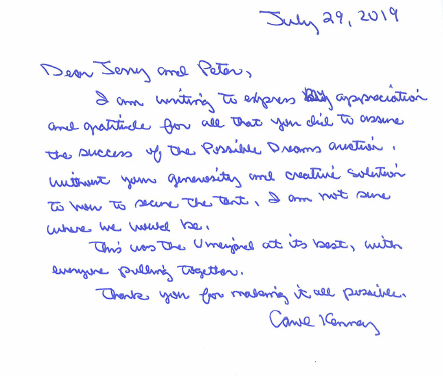 July 29, 2019
Dear Jerry and Peter,
I am writing to express my appreciation
and gratitude for all that you did to assure
the success of the Possible Dreams auction.
Without your generosity and creative solution
to how to secure the tent, I am not sure
where we would be.
This was the Vineyard at its best, with
everyone pulling together.
Thank you for making it all possible.
Kenney